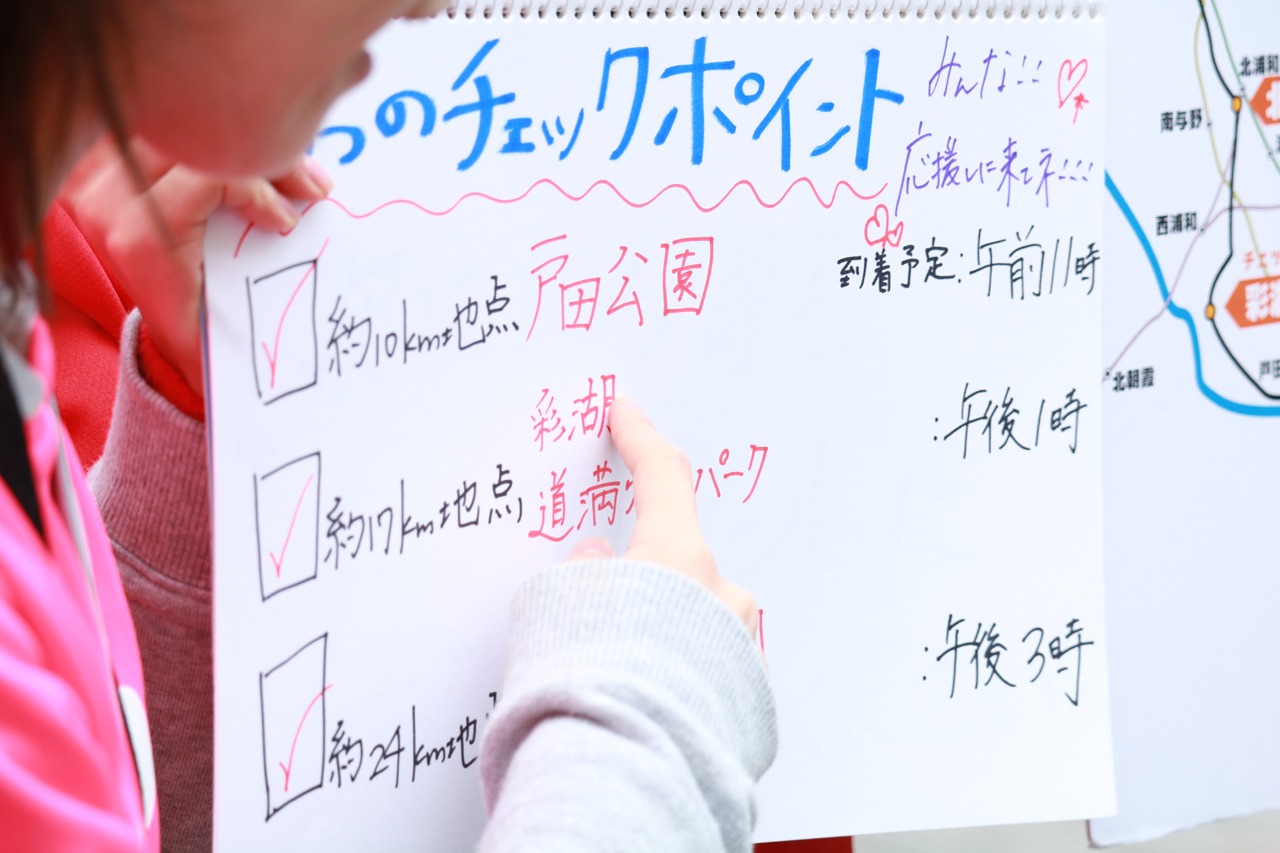 つのチェックポイント
みんな!!
応援しに来てネ!!!
約10km地点 戸田公園 到着予定:午前11時
彩湖
:午後1時
約17km地点 道満 パーク
約24km地
:午後3時
北浦和
南与野
西浦和
北朝霞